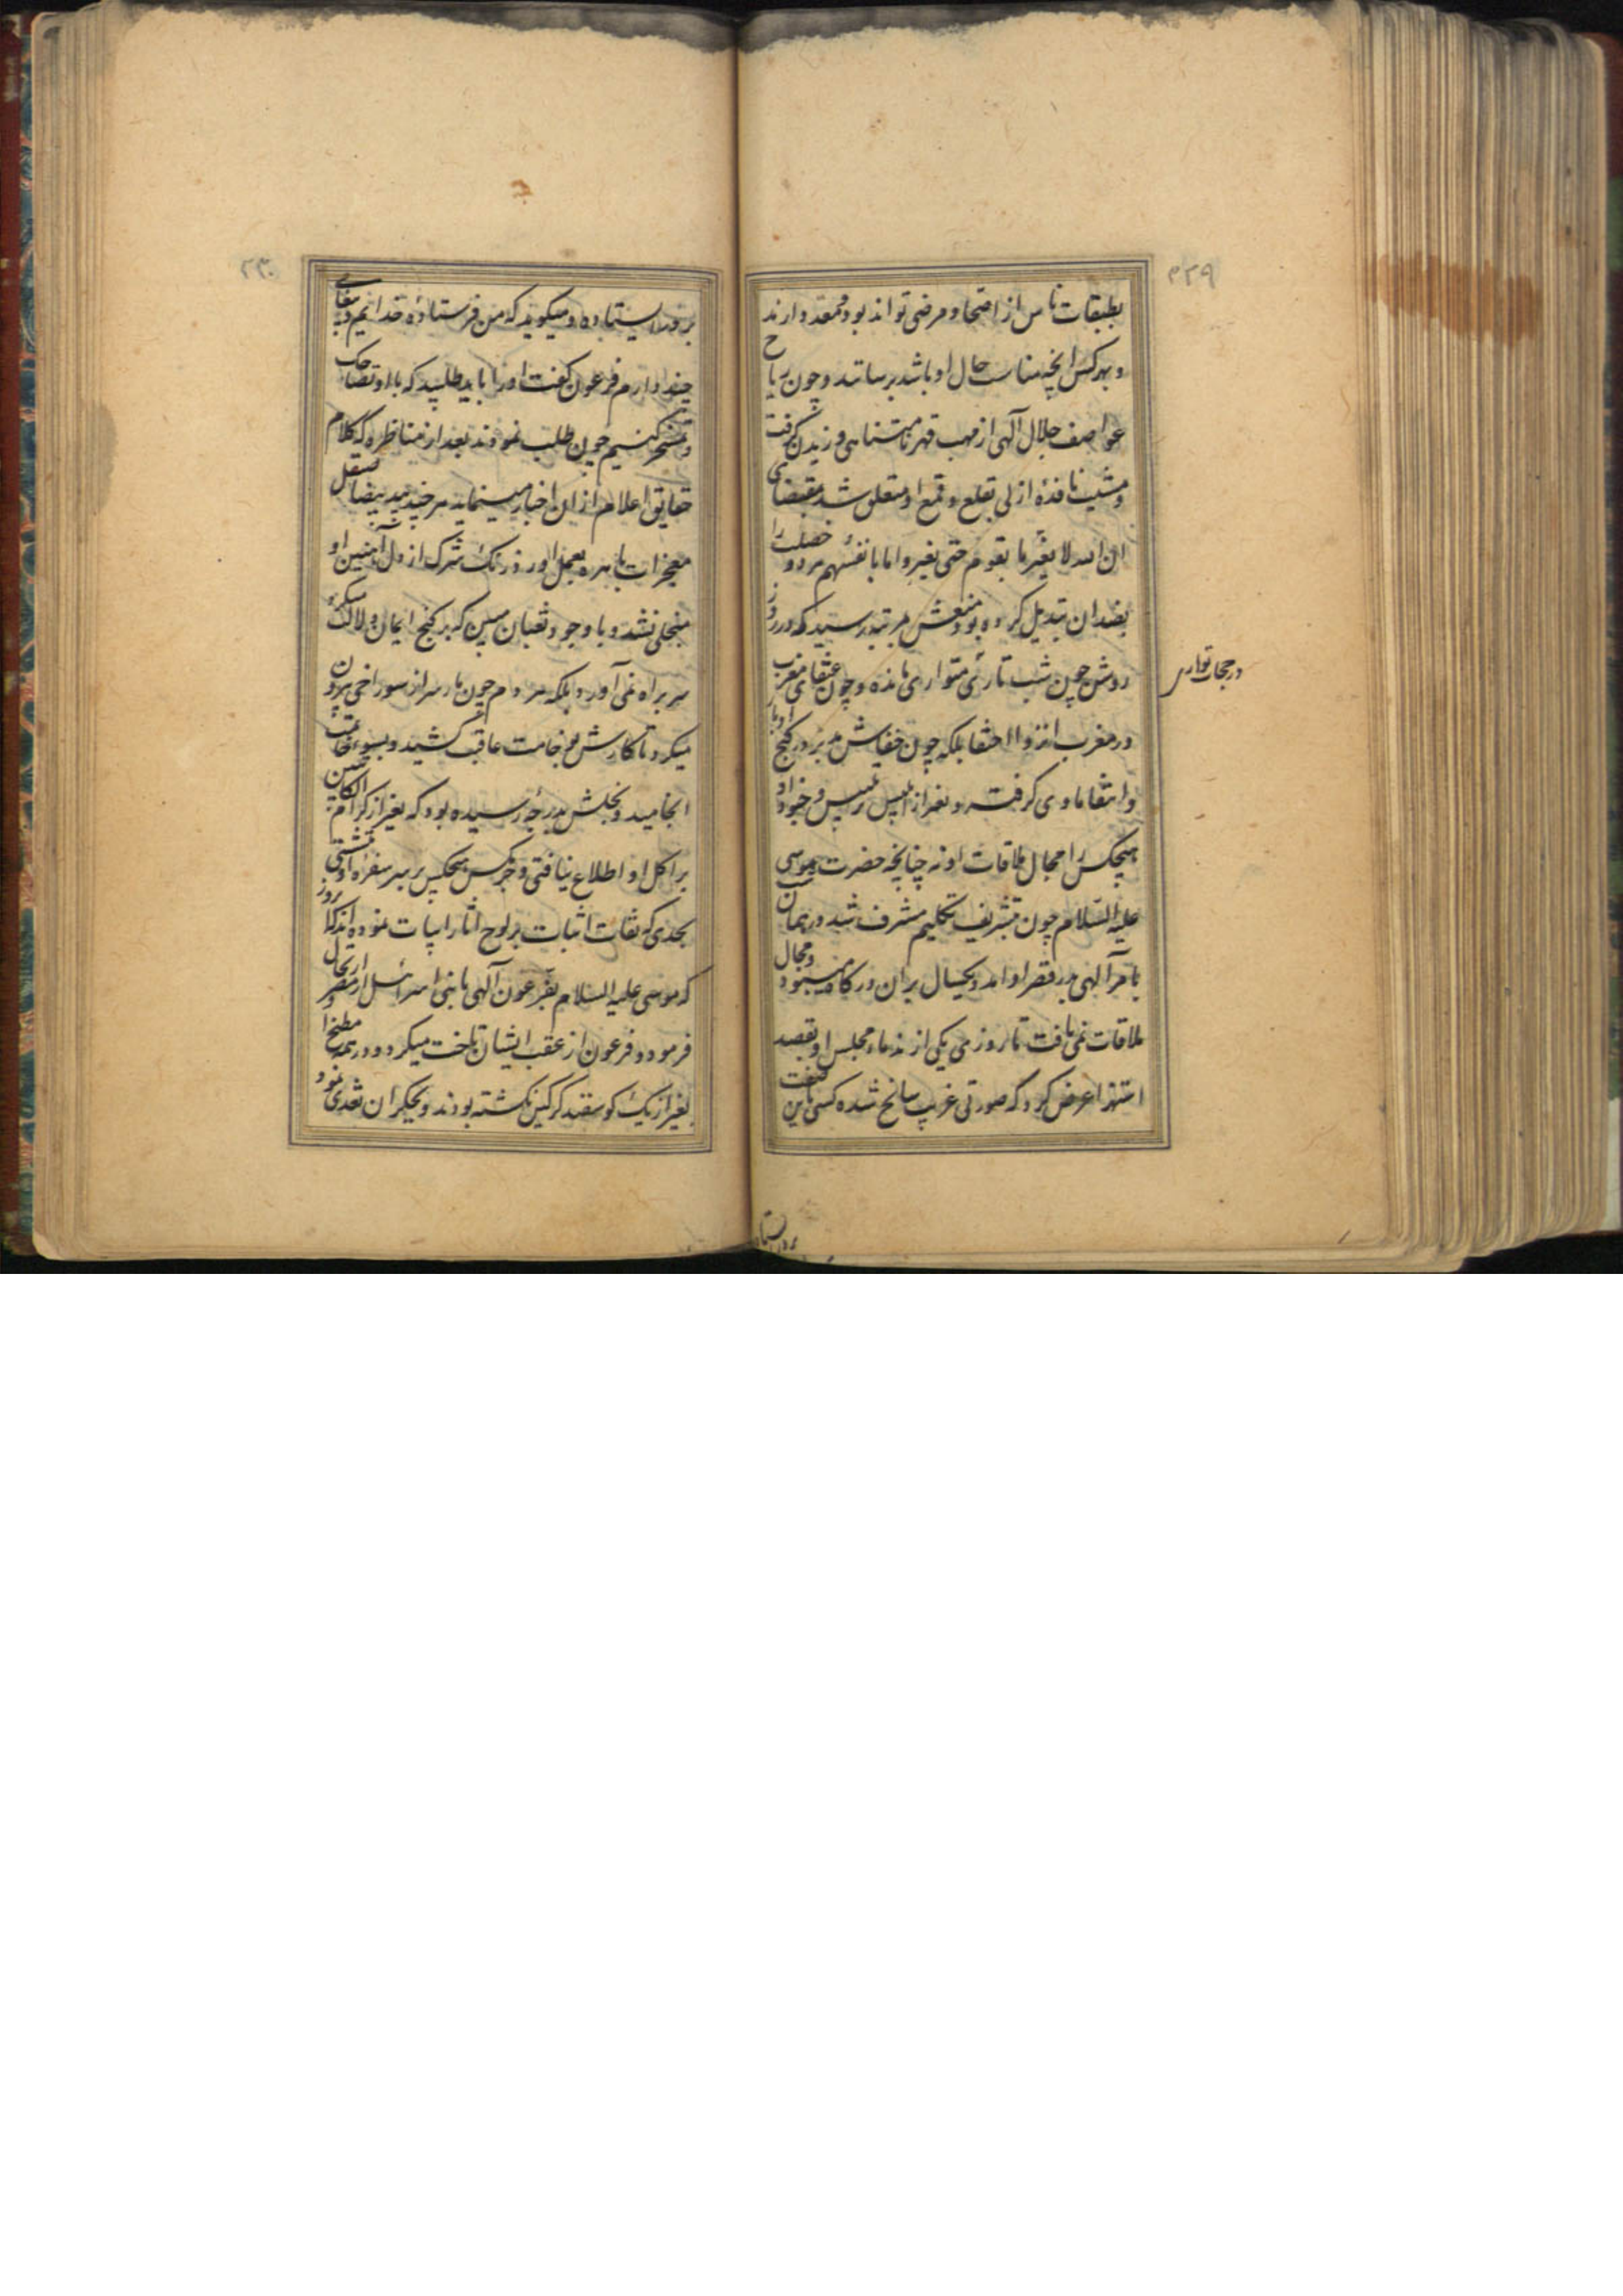 ۲۳۹
بطبقات ناس از اصحا و مرضی تواند بود ممقد دارند
و بهر کس آنچه مناسب حال او باشد برسانند و چون ریاح
عواصف جلال آلهی از مهب قهر نامتناهی وزیدن گرفت
و مشیت نافذهٔ ازلی بقلع و قمع او متعلق شد بمقتضای
ان الله لا یغیر ما بقوم حتی یغیروا ما بانفسهم هر دو خصلت را
بضد ان تبدیل کرده بود منعش بمرتبه رسید که در روز
روشن چون شب تاری متواری مانده و چون عنقای مغرب
در حجاب تواری
در مغرب انزوا اختفا بلکه چون خفاش مدبر در کنج ادبار
و انتفا ماوی گرفته و بغیر از ابلیس رئیس و خود او
هیچکس را مجال ملاقات او نه چنانچه حضرت موسی
علیه السلام چون بتشریف تکلیم مشرف شد در همان شب
بامر آلهی بدر قصر او امد و یکسال بران درگاه میبود و مجال
ملاقات نمی یافت تا روزی یکی از ندماء مجلس او بقصد
استهزا عرض کرد که صورتی غریب سانح شده کسی باین صفت
بر در ایستاده
۲۴۰
بر در ایستاده و میگوید که من فرستادهٔ خدایم و پیغامی
چند دارم فرعون گفت او را باید طلبید که با او تضاحک
و تمسخر کنیم چون طلب نمودند بعد از مناظره که کلام
حقایق اعلام از ان اخبار مینماید هر چند ید بیضا صیقل
معجزات باهره بعمل اورد زنک شرک از دل آهنین او
منجلی نشد و با وجود ثعبان مبین که بر کنج ایمان دلالت میکرد
سر براه نمی آورد بلکه هر دم چون مار سر از سوراخی بیرون
میکرد تا کارش بوخامت عاقبت کشید و بسوء خاتمت
انجامید و بخلش بدرجهٔ رسیده بود که بغیر از کرام الکاتبین
بر اکل او اطلاع نیافتی و جز مکس هیچکس بر سر سفره او ننشستی
بحدی که ثقات اثبات بر لوح اثار اثبات نموده اند که روز
که موسی علیه السلام بفرعون آلهی با بنی اسرائیل از مصر ارتحال
فرمود و فرعون از عقب ایشان تاخت میکرد و در همه مطبخ او
بغیر از یک کوسفند کرکین نکشته بودند و بجکران تعدی نمود